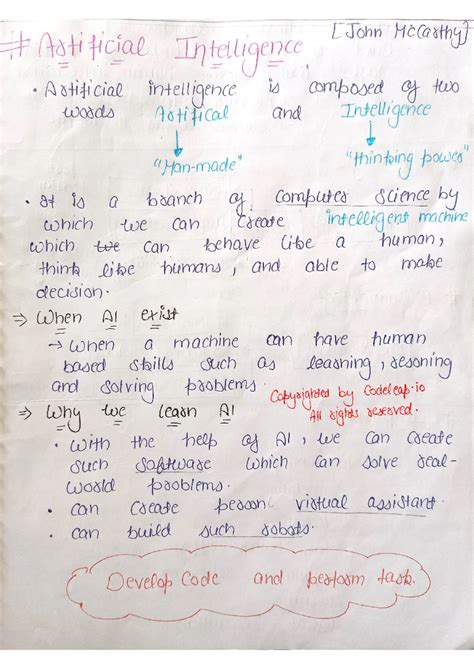 [John McCarthy]
# Artificial Intelligence
• Artificial intelligence is composed of two
words Artifical and Intelligence
"Man-made" "thinking power"
• It is a branch of computer science by
which we can create intelligent machine
which we can behave like a human,
think like humans, and able to make
decision.
⇒ When AI exist
→ When a machine can have human
based skills such as learning, resoning
and solving problems.
Copyrighted by Codeleap.io
All rights reserved.
⇒ Why we learn AI
• With the help of AI, we can create
such software which can solve real-
world problems.
• can create person virtual assistant.
• can build such robots.
Develop Code and perform task.